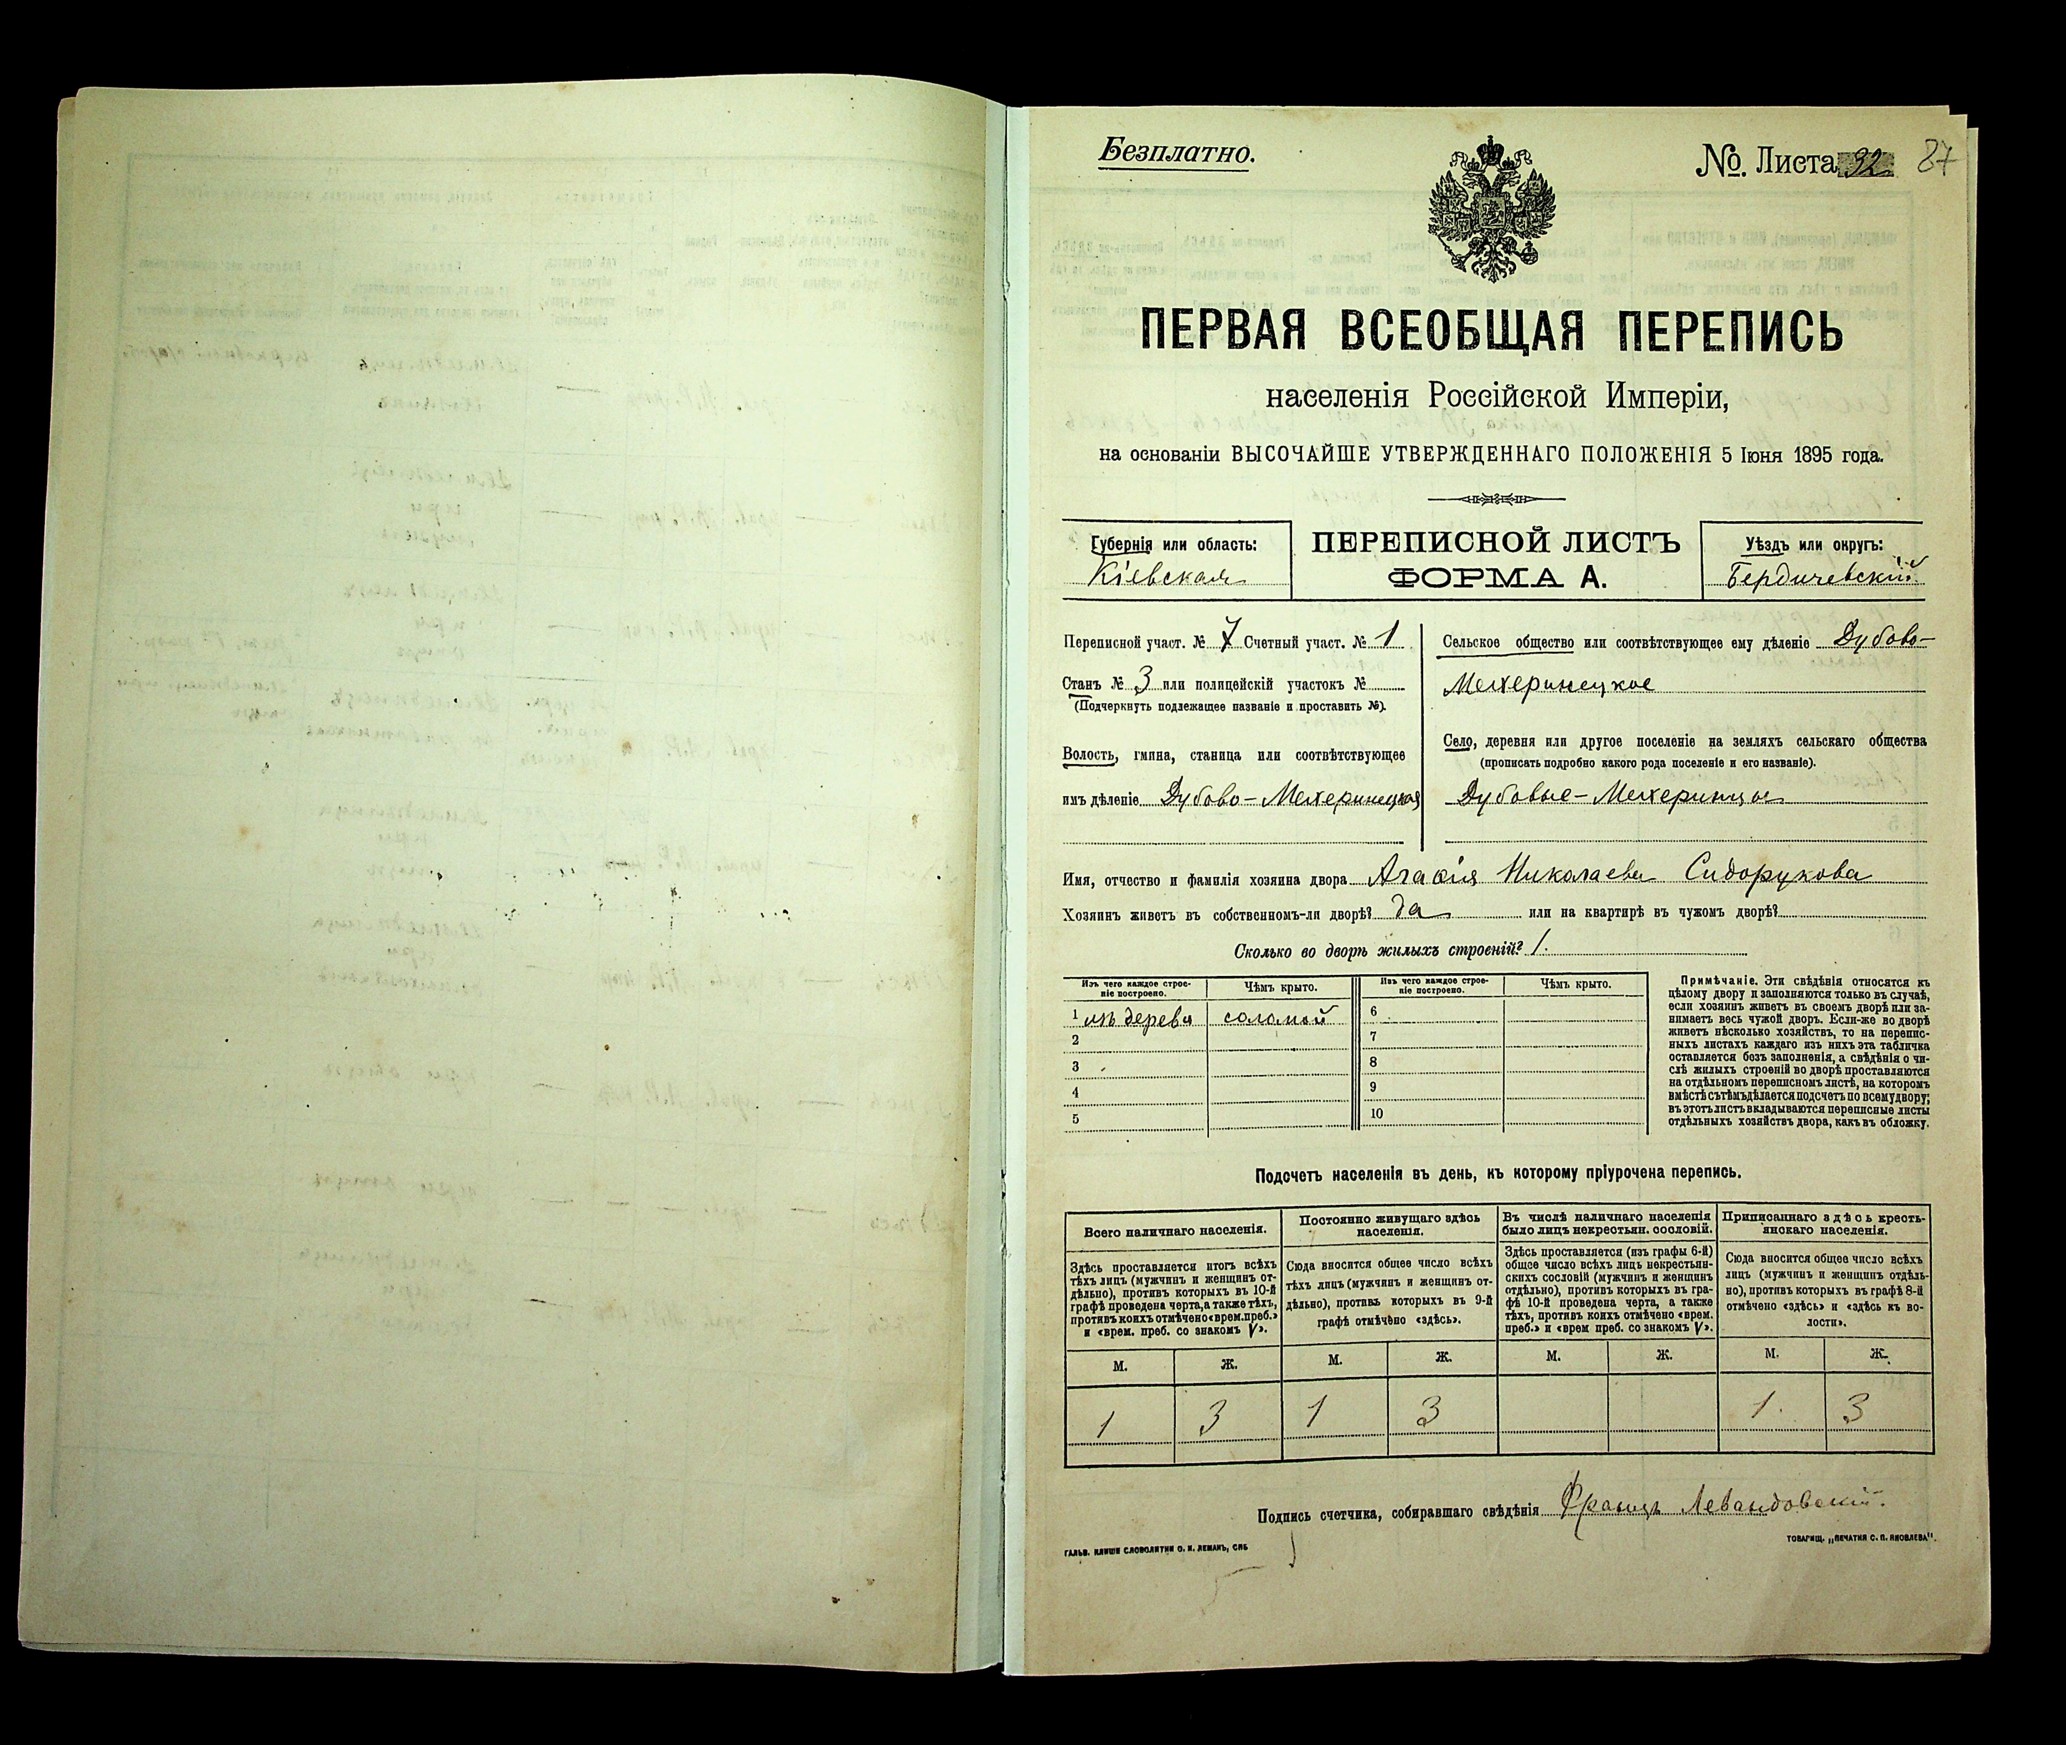 Безплатно.
№. Листа 92 87
ПЕРВАЯ ВСЕОБЩАЯ ПЕРЕПИСЬ
населенія Россійской Имперіи,
на основаніи ВЫСОЧАЙШЕ УТВЕРЖДЕННАГО ПОЛОЖЕНІЯ 5 Іюня 1895 года.
Губернія или область:
Кіевская
ПЕРЕПИСНОЙ ЛИСТЪ
ФОРМА А.
Уѣздъ или округъ:
Бердичевскій
Переписной участ. № 7 Счетный участ. № 1
Станъ № 3 или полицейскій участокъ №
(Подчеркнуть подлежащее названіе и проставить №).
Волость, гмина, станица или соотвѣтствующее
имъ дѣленіе Дубово-Махеринецкая
Сельское общество или соотвѣтствующее ему дѣленіе Дубово-
Махеринецкое
Село, деревня или другое поселеніе на земляхъ сельскаго общества
(прописать подробно какого рода поселеніе и его названіе).
Дубовые-Махеринцы
Имя, отчество и фамилія хозяина двора Агафія Николаева Сидорукова
Хозяинъ живетъ въ собственномъ-ли дворѣ? да или на квартирѣ въ чужомъ дворѣ?
Сколько во дворѣ жилыхъ строеній? 1.
Изъ чего каждое строе-
ніе построено.
Чѣмъ крыто.
Изъ чего каждое строе-
ніе построено.
Чѣмъ крыто.
1 изъ дерева соломой 6
2 7
3 8
4 9
5 10
Примѣчаніе. Эти свѣдѣнія относятся къ
цѣлому двору и заполняются только въ случаѣ,
если хозяинъ живетъ въ своемъ дворѣ или за-
нимаетъ весь чужой дворъ. Если-же во дворѣ
живетъ нѣсколько хозяйствъ, то на перепис-
ныхъ листахъ каждаго изъ нихъ эта табличка
оставляется безъ заполненія, а свѣдѣнія о чи-
слѣ жилыхъ строеній во дворѣ проставляются
на отдѣльномъ переписномъ листѣ, на которомъ
вмѣстѣ съ тѣмъ дѣлается подсчетъ по всему двору;
въ этотъ листъ вкладываются переписные листы
отдѣльныхъ хозяйствъ двора, какъ въ обложку.
Подсчетъ населенія въ день, къ которому пріурочена перепись.
Всего наличнаго населенія.
Здѣсь проставляется итогъ всѣхъ
тѣхъ лицъ (мужчинъ и женщинъ от-
дѣльно), противъ которыхъ въ 10-й
графѣ проведена черта, а также тѣхъ,
противъ коихъ отмѣчено «врем. преб.»
и «врем. преб. со знакомъ V».
Постоянно живущаго здѣсь
населенія.
Сюда вносится общее число всѣхъ
тѣхъ лицъ (мужчинъ и женщинъ от-
дѣльно), противъ которыхъ въ 9-й
графѣ отмѣчено «здѣсь».
Въ числѣ наличнаго населенія
было лицъ некрестьян. сословій.
Здѣсь проставляется (изъ графы 6-й)
общее число всѣхъ лицъ некрестьян-
скихъ сословій (мужчинъ и женщинъ
отдѣльно), противъ которыхъ въ гра-
фѣ 10-й проведена черта, а также
тѣхъ, противъ коихъ отмѣчено «врем.
преб.» и «врем преб. со знакомъ V».
Приписаннаго здѣсь кресть-
янскаго населенія.
Сюда вносится общее число всѣхъ
лицъ (мужчинъ и женщинъ отдѣль-
но), противъ которыхъ въ графѣ 8-й
отмѣчено «здѣсь» и «здѣсь къ во-
лости».
М. Ж. М. Ж. М. Ж. М. Ж.
1 3 1 3 1 3
Подпись счетчика, собиравшаго свѣдѣнія Францъ Левандовскій.
ГАЛЬВ. КЛИШЕ СЛОВОЛИТНИ О. И. ЛЕМАНЪ, СПБ
ТОВАРИЩ. „ПЕЧАТНЯ С. П. ЯКОВЛЕВА".